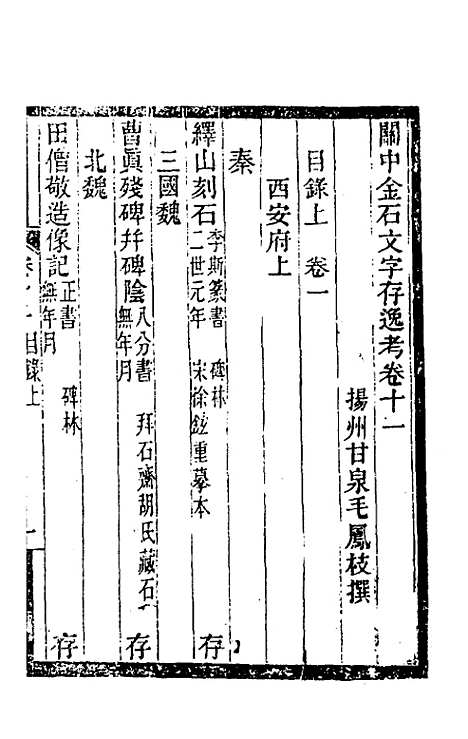 關中金石文字存逸考卷十一
揚州甘泉毛鳳枝撰
目錄上 卷一
西安府上
秦
繹山刻石 李斯篆書 碑林 二世元年 宋徐鉉重摹本 存
三國魏
曹眞殘碑幷碑陰 八分書 無年月 拜石齋胡氏藏石 存
北魏
田僧敬造像記 正書 碑林 無年月 存
目錄上